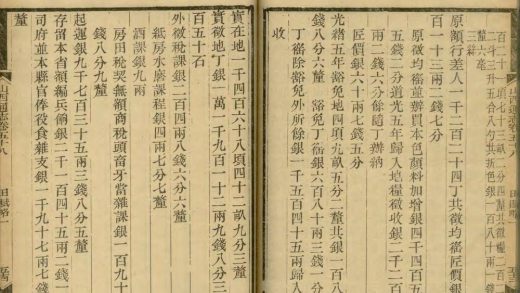 釐六毫
三錢
原額行差人一千二百二十四丁共徵均徭匠價銀
百一十三兩二錢七分
原徵均徭並辦買本色顏料加增銀四千四百五
五錢二分道光五年歸入地糧徵收銀二千二百
兩二錢六分餘隨丁辦納
匠價銀六十兩七錢五分
光緒五年豁免地四頃九畝五分二釐共銀一百八
錢八分六釐　豁免丁徭銀六百八十兩三錢一分
丁徭除豁免外所餘銀一千五百五十兩歸入
收
實在地一千四百六十八頃四十二畝九分三釐
實徵地丁銀一萬一千九百一十二兩九錢八分三
百五十石
外徵稅課銀二百四兩八錢六分六釐
紙房水磨課程銀四兩七分七釐
酒課銀九兩
房田稅契無額商稅頭畜牙當雜課銀一百九十
錢八分九釐
起運銀九千七百三十五兩三錢八分五釐
存留本省額編兵餉銀二千一百四十五兩二錢一
司府並本縣官俸役食雜支銀一千九百七兩七錢
釐
山西通志卷五十八　田賦略一